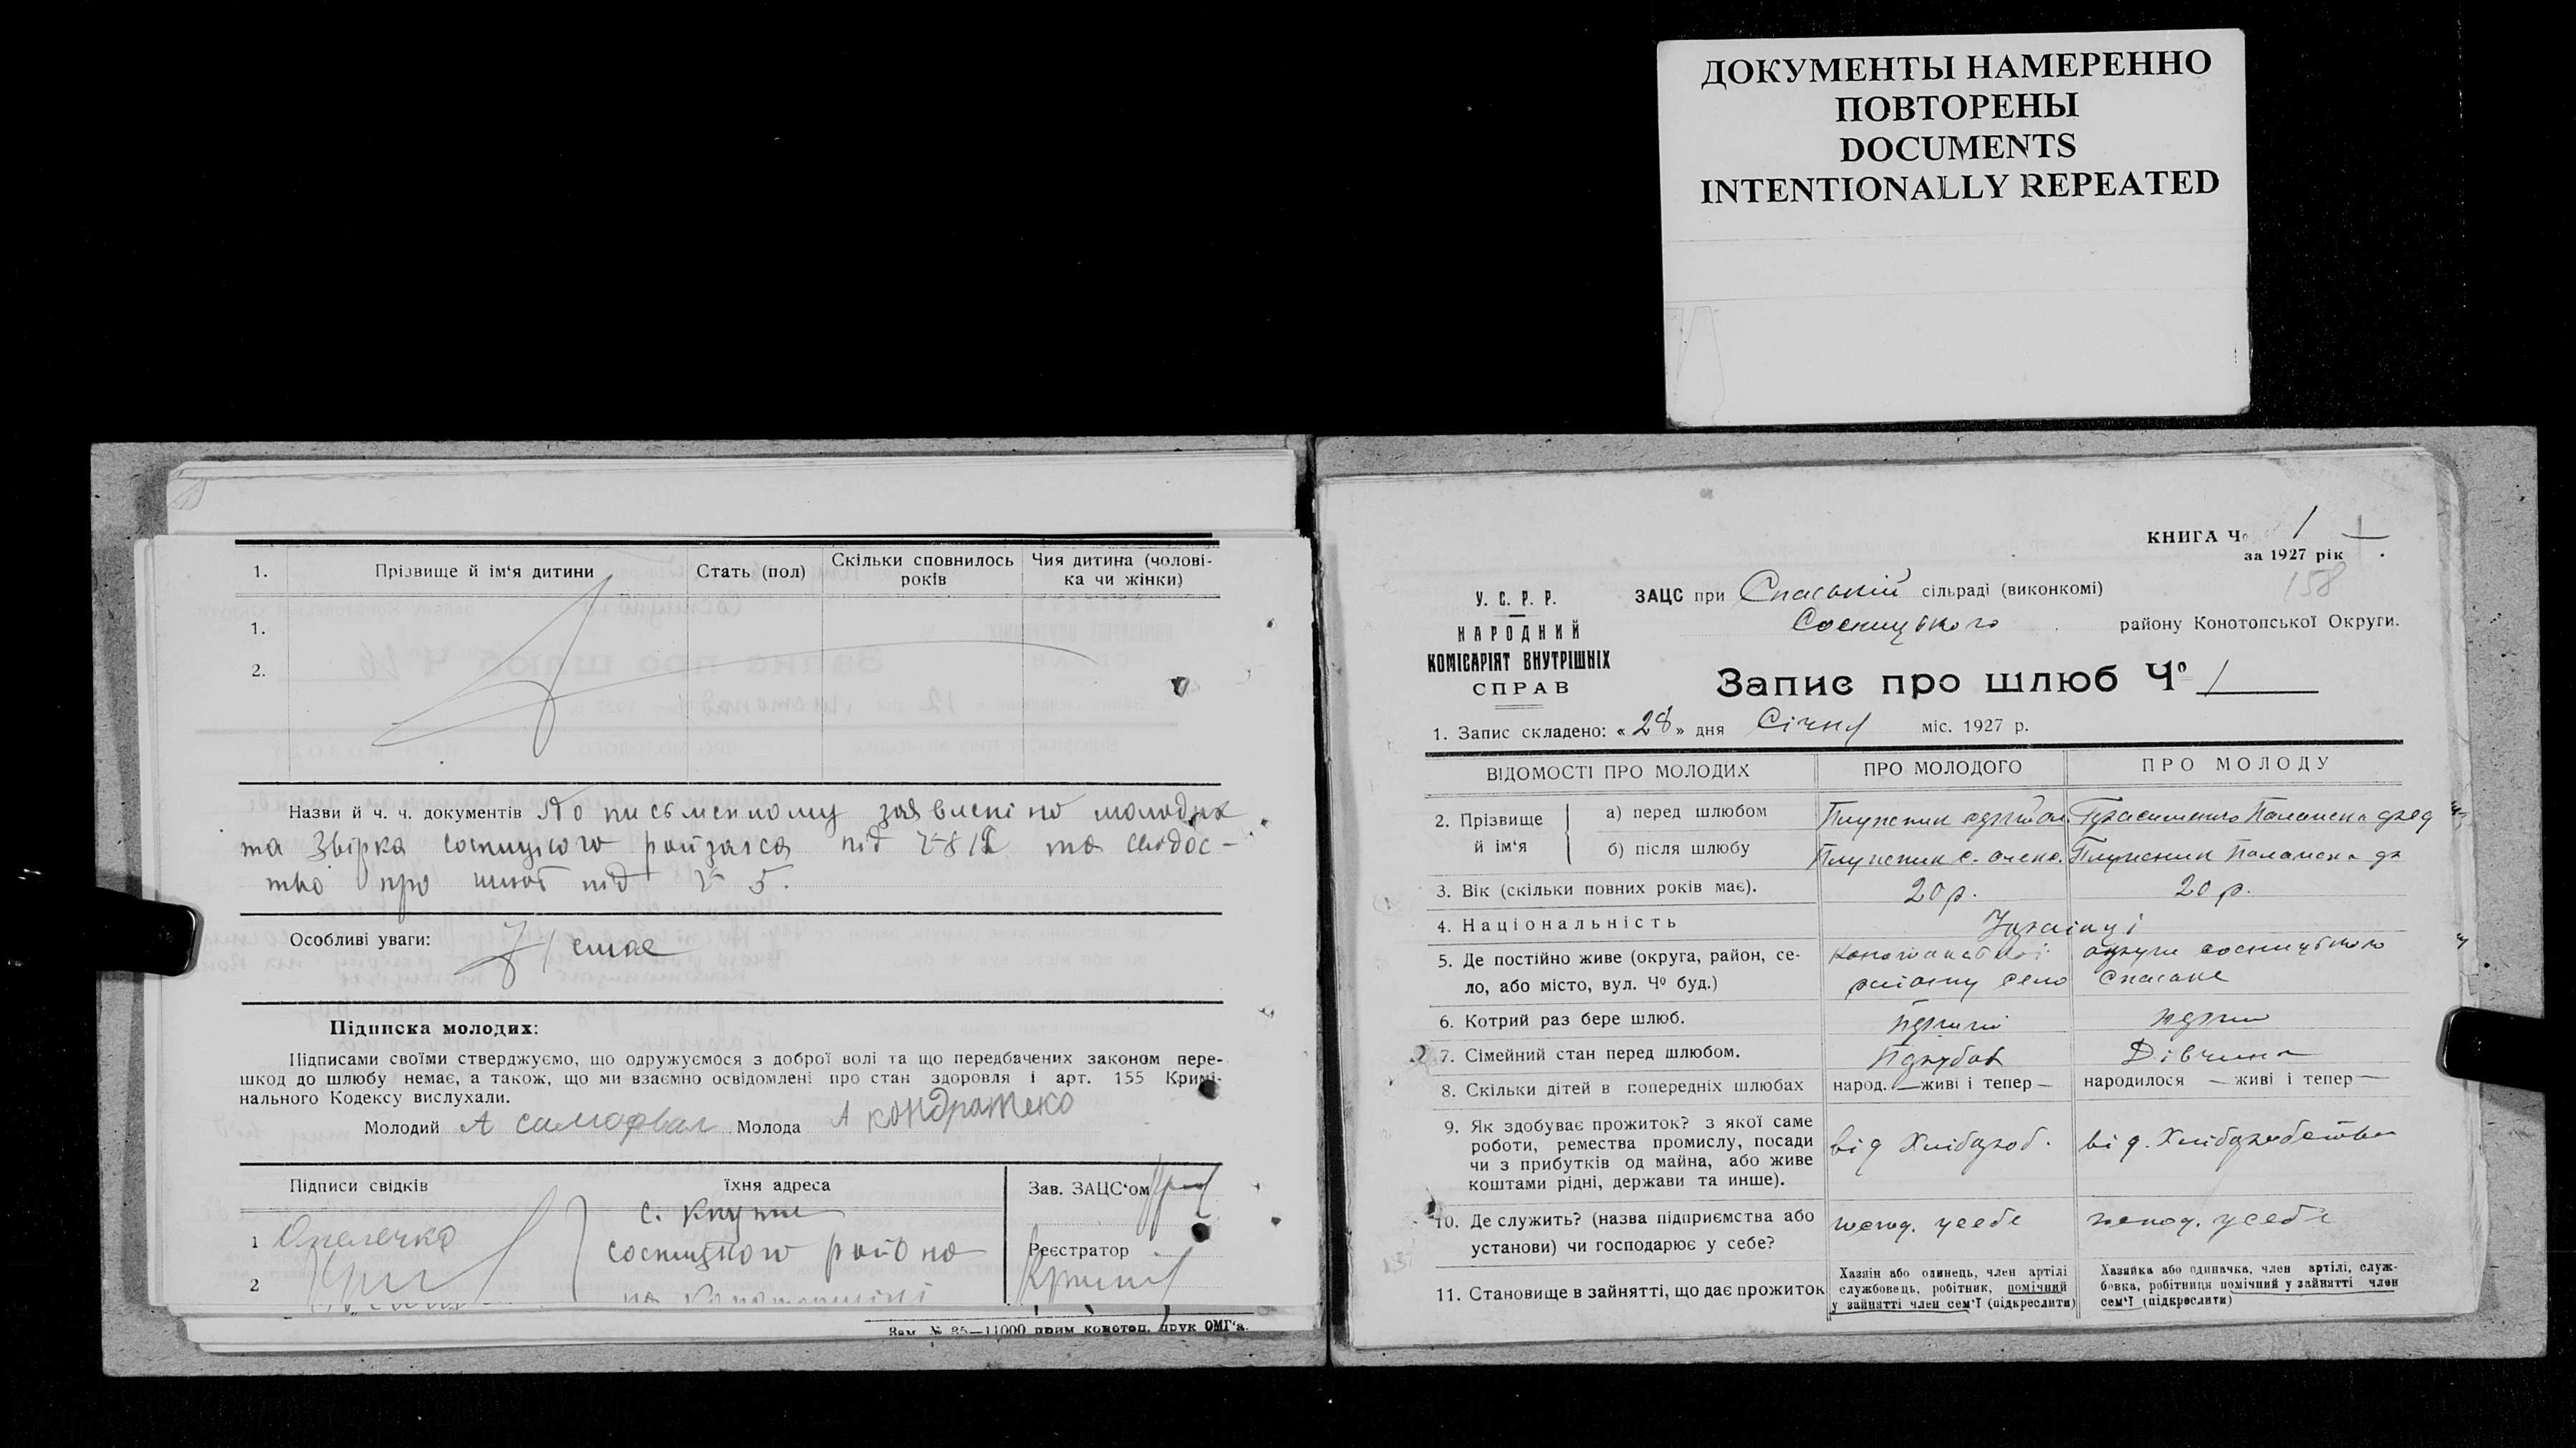 ДОКУМЕНТЫ НАМЕРЕННО
ПОВТОРЕНЫ
DOCUMENTS
INTENTIONALLY REPEATED
1. Прізвище й ім‘я дитини Стать (пол) Скільки сповнилось років Чия дитина (чоловіка чи жінки)
1.
2.
Назви й ч. ч. документів По письменному молодих
та Звірка сосницького під та свідос-
тво про шлюб під № 5.
Особливі уваги: Немає
Підписка молодих:
Підписами своїми стверджуємо, що одружуємося з доброї волі та що передбачених законом пере-
шкод до шлюбу немає, а також, що ми взаємно освідомлені про стан здоровля і арт. 155 Кримі-
нального Кодексу вислухали.
Молодий А Молода А кондратеко
Підписи свідків їхня адреса Зав. ЗАЦС‘ом
с.
1 сосницкого району Реєстратор
2 на
Зам. № 35—11000 прим конотоп. друк ОМГ‘а.
КНИГА Ч⁰ 1
за 1927 рік
158
У. С. Р. Р.
НАРОДНИЙ
КОМІСАРІЯТ ВНУТРІШНІХ
СПРАВ
ЗАЦС при Спаській сільраді (виконкомі)
Сосницького району Конотопської Округи.
Запис про шлюб Ч⁰ 1
1. Запис складено: «28» дня Січня міс. 1927 р.
ВІДОМОСТІ ПРО МОЛОДИХ ПРО МОЛОДОГО ПРО МОЛОДУ
2. Прізвище й ім‘я
а) перед шлюбом Плужник Герасименко
б) після шлюбу Плужник Плужник
3. Вік (скільки повних років має). 20 р. 20 р.
4. Національність Українці
5. Де постійно живе (округа, район, се- Конотопської округи сосницького
ло, або місто, вул. Ч⁰ буд.) району село Спаське
6. Котрий раз бере шлюб. перший перш
7. Сімейний стан перед шлюбом. Парубок Дівчина
8. Скільки дітей в попередніх шлюбах народ. — живі і тепер — народилося — живі і тепер —
9. Як здобуває прожиток? з якої саме
роботи, ремества промислу, посади
чи з прибутків од майна, або живе
коштами рідні, держави та инше).
від Хлібороб. від. Хліборобства
10. Де служить? (назва підприємства або
установи) чи господарює у себе?
господ. у себе господ. у себе
11. Становище в зайнятті, що дає прожиток
Хазяін або одинець, член артілі
службовець, робітник, помічний
у зайнятті член сем‘ї (підкреслити)
Хазяйка або одиначка, член артілі, служ-
бовка, робітниця помічний у зайнятті член
сем‘ї (підкреслити)